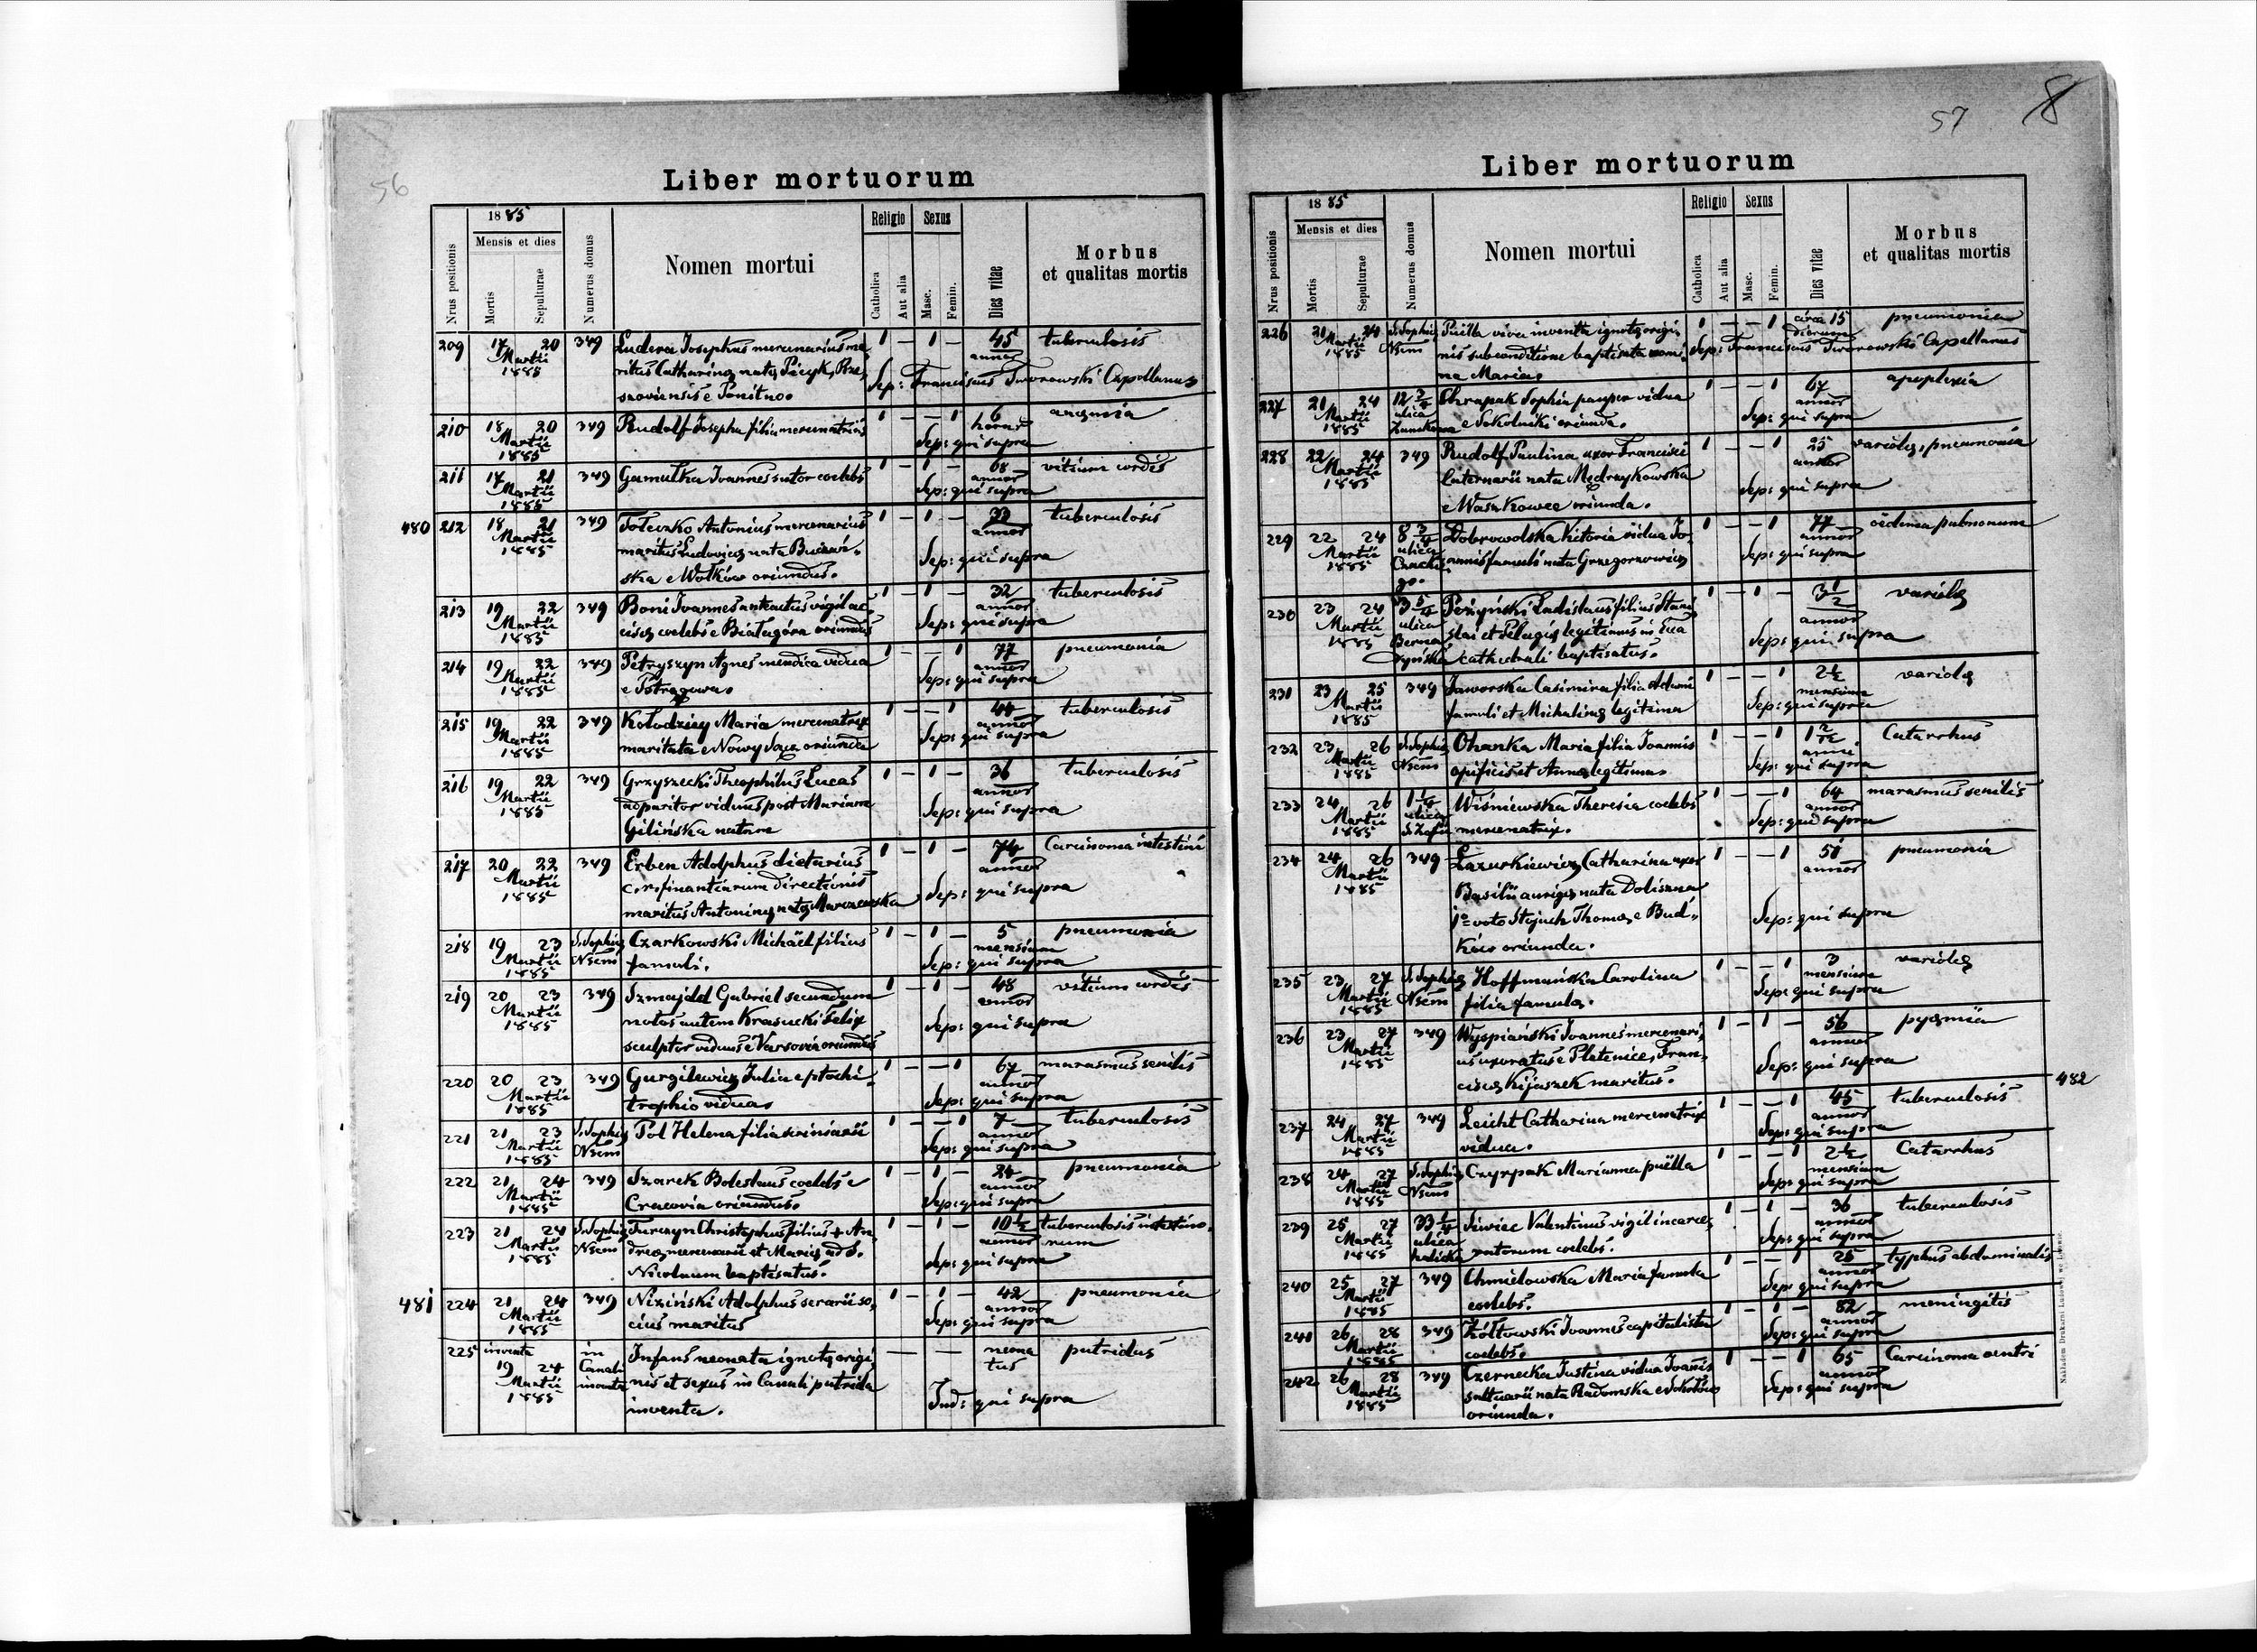 56
Liber mortuorum
18 85
Mensis et dies
Nrus positionis
Mortis
Sepulturae
Numerus domus
Nomen mortui
Religio
Sexus
Catholica
Aut alia
Masc.
Femin.
Dies vitae
Morbus
et qualitas mortis
209 17 20 Martii 1885 349 Ludera Josephus mercenarius ma, 1 - 1 - 45 annor tuberculosis
ritus Catharinæ natæ Pięyk, Rze,
szoviensis e Ponitno. Sep: Franciscus Tworowski Capellanus
210 18 20 Martii 1885 349 Rudolf Josepha filia mercenatricis 1 - - 1 6 horar
Sep: qui supra
211 17 21 Martii 1885 349 Gamułka Joannes sutor coelebs 1 - 1 - 68 annor vitium cordis
Sep: qui supra
480 212 18 21 Martii 1885 349 Toteczko Antonius mercenarius 1 - 1 - 33 annor tuberculosis
maritus Ludovicæ nata
ska e Wołków oriundus. Sep: qui supra
213 19 22 Martii 1885 349 Boni Joannes anteactus vigil ac, 1 - 1 - 32 annor tuberculosis
cisæ coelebs e Białagóra oriundus Sep: qui supra
214 19 22 Martii 1885 349 Petryszyn Agnes mendica vidua 1 - - 1 77 annor pneumonia
e Sep: qui supra
215 19 22 Martii 1885 349 Kołodziey Maria mercenatrix 1 - - 1 44 annor tuberculosis
maritata e Nowy Sącz oriunda Sep: qui supra
216 19 22 Martii 1885 349 Grzyszecki Theophilus Lucas 1 - 1 - 36 annor tuberculosis
adparitor viduus post Mariam
Gilińska natam Sep: qui supra
217 20 22 Martii 1885 349 Erben Adolphus dietarius 1 - 1 - 74 annor Carcinoma intestini
c. r. finantiarum directionis
maritus Antoninæ natæ Marczewska Sep: qui supra
218 19 23 Martii 1885 S. Sophiæ Nsem Czarkowski Michäel filius 1 - 1 - 5 mensium pneumonia
famuli. Sep: qui supra
219 20 23 Martii 1885 349 Szmajdel Gabriel secundum 1 - 1 - 48 annor vitium cordis
notas autem Krasucki Felix
sculptor viduus e Varsovia oriundus Sep: qui supra
220 20 23 Martii 1885 349 Gurgilewicz Julia e ptochi, 1 - - 1 67 annor marasmus senilis
trophio vidua. Sep: qui supra
221 21 23 Martii 1885 S. Sophiæ Nsem Pol Helena filia scriniarii 1 - - 1 7 annor tuberculosis
Sep: qui supra
222 21 24 Martii 1885 349 Szarek Boleslaus coelebs e 1 - 1 - 24 annor pneumonia
Cracovia oriundus. Sep: qui supra
223 21 24 Martii 1885 S. Sophiæ Nsem Turczyn Christophus filius + An, 1 - 1 - 10½ annor tuberculosis intestino,
dreæ mercenarii et Mariæ ad S. rum
Nicolaum baptisatus. Sep: qui supra
481 224 21 24 Martii 1885 349 Niziński Adolphus serarii so, 1 - 1 - 42 annor pneumonia
cius maritus Sep: qui supra
225 inventa 19 24 Martii 1885 in Canali inventa Infans neonata ignotæ origi, - - neona tus putridus
nis et sexus in Canali putrida
inventa. Ind: qui supra
57
8
Liber mortuorum
18 85
Mensis et dies
Nrus positionis
Mortis
Sepulturae
Numerus domus
Nomen mortui
Religio
Sexus
Catholica
Aut alia
Masc.
Femin.
Dies vitae
Morbus
et qualitas mortis
226 21 24 Martii 1885 S. Sophiæ Nsem Püella viva inventa ignotæ origi, 1 - - 1 circa 15 dierum pneumonia
nis subconditione baptisata nomi, Sep: Franciscus Tworowski Capellanus
na Maria.
227 21 24 Martii 1885 12 3/4 ulica Chrapak Sophia pauper vidua 1 - - 1 67 annor apoplexia
e Sokolniki oriunda. Sep: qui supra
228 22 24 Martii 1885 349 Rudolf Paulina uxor Francisci 1 - - 1 25 annor variolæ, pneumonia
laternarii nata Mędrzykowska
e Waszkowce oriunda. Sep: qui supra
229 22 24 Martii 1885 8 3/4 ulica Czackiego. Dobrowolska Victoria vidua Jo, 1 - - 1 77 annor öedema pulmonum
annis famuli nata Grzegorzewicz Sep: qui supra
230 23 24 Martii 1885 3 5/4 ulica Bernadyńska Pożyński Ladislaus filius Stani 1 - 1 - 3½ annor variolæ
slai et Pelagiæ legitimus in Ecca
cathedrali baptisatus. Sep: qui supra
231 23 25 Martii 1885 349 Jaworska Casimira filia Adami 1 - - 1 2½ mensium variolæ
famuli et Michalinæ legitima Sep: qui supra
232 23 26 Martii 1885 S. Sophiæ Nsem Ohanka Maria filia Joannis 1 - - 1 1 2/12 anni Catarrhus
opificis et Annæ legitima. Sep: qui supra
233 24 26 Martii 1885 1 1/4 ulica S. Zofii Wiśniewska Theresia coelebs 1 - - 1 64 annor marasmus senilis
mercenatrix. Sep: qui supra
234 24 26 Martii 1885 349 Łazurkiewicz Catharina uxor 1 - - 1 51 annor pneumonia
Basilii aurigæ nata Doliszna
1o voto Stojuch Thomæ, e Bud,
ków oriunda. Sep: qui supra
235 23 27 Martii 1885 S. Sophiæ Nsem Hoffmańska Carolina 1 - - 1 3 mensium variolæ
filia famulæ. Sep: qui supra
236 23 27 Martii 1885 349 Wyspiański Joannes mercenari, 1 - 1 - 56 annor pyæmia
us uxoratus e Pletenice, Fran,
ciscæ Kijaszek maritus. Sep: qui supra
482
237 24 27 Martii 1885 349 Leicht Catharina mercenatrix 1 - - 1 45 annor tuberculosis
vidua. Sep: qui supra
238 24 27 Martii 1885 S. Sophiæ Nsem Czyrpak Marianna püella 1 - - 1 2½ mensium Catarrhus
Sep: qui supra
239 25 27 Martii 1885 33 1/4 ulica halicka Siwiec Valentinus vigil incarce, 1 - 1 - 36 annor tuberculosis
ratorum coelebs. Sep: qui supra
240 25 27 Martii 1885 349 Chmielowska Maria famula 1 - - 1 25 annor typhus abdominalis
coelebs. Sep: qui supra
241 26 28 Martii 1885 349 Żółtowski Joannes capitalista 1 - 1 - 82 annor meningitis
coelebs. Sep: qui supra
242 26 28 Martii 1885 349 Czernecka Justina vidua Joannis 1 - - 1 65 annor Carcinoma ventri
saltuarii nata Radomska e Sokołów Sep: qui supra
oriunda.